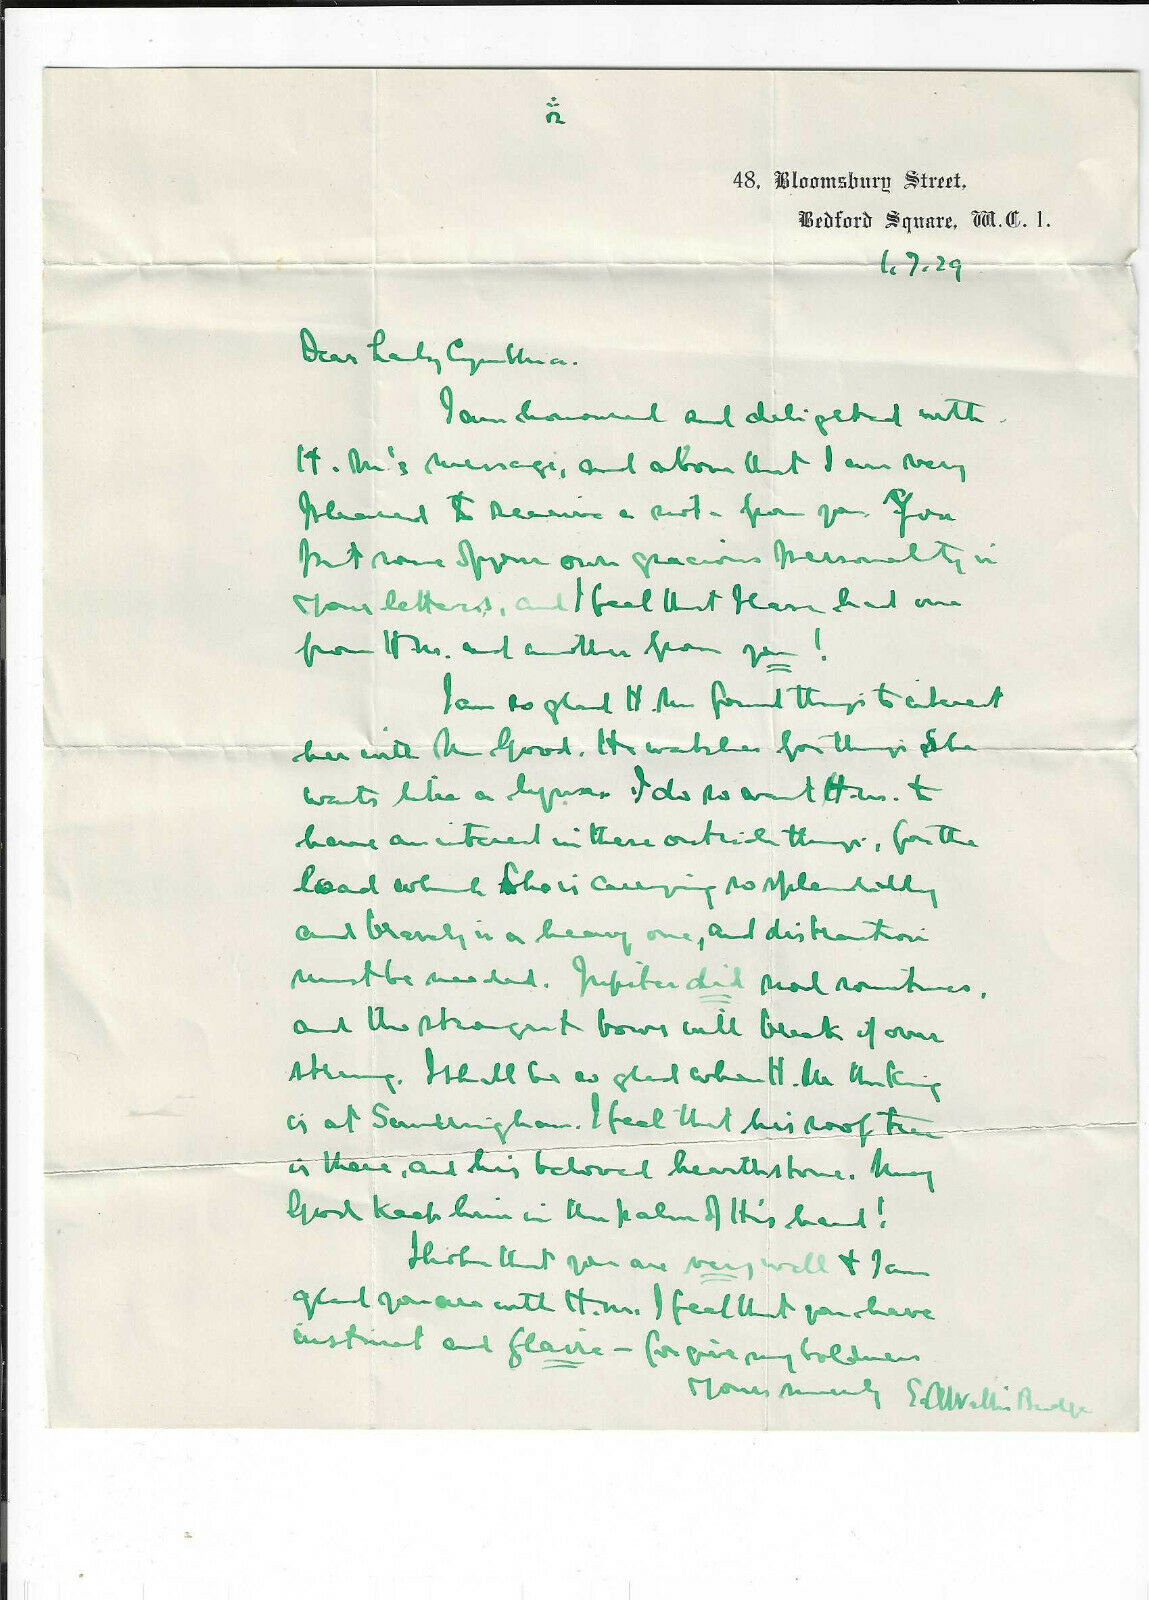 48, Bloomsbury Street,
Bedford Square, W.C. 1.
1.7.29
Dear Lady Cynthia.
I am honoured and delighted with
H.M's message, and above that I am very
pleased to receive a note from you. You
put some of your own gracious personality in
your letters, and I feel that I have had one
from H.M. and another from you!
I am so glad H.M. found things to interest
her with Mr Good. He watches for things She
wants like a lynx. I do so want H.M. to
have an interest in these outside things, for the
load which She is carrying so splendidly
and bravely is a heavy one, and distraction
must be needed. Jupiter did nod sometimes,
and the strongest bows will break if over
strung. I shall be so glad when H.M. the King
is at Sandringham. I feel that his roof tree
is there, and his beloved hearthstone. May
God keep him in the palm of His hand!
I hope that you are very well & I am
glad you are with H.M. I feel that you have
instinct and flair – forgive my boldness
Yours sincerely E.A. Wallis Budge